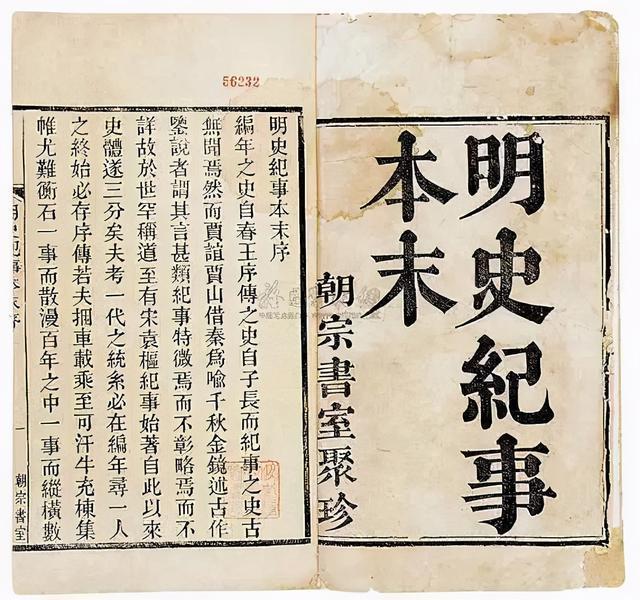 明史紀事
本末
朝宗書室聚珍
56232
明史紀事本末序
編年之史自春王序傳之史自子長而紀事之史古
無聞焉然而賈誼賈山借秦爲喻千秋金鏡述古作
鑒說者謂其言甚類紀事特微焉而不彰略焉而不
詳故於世罕稱道至有宋袁樞紀事始著自此以來
史體遂三分矣夫考一代之統系必在編年尋一人
之終始必存序傳若夫捆車載乘至可汗牛充棟集
帷尤難衡石一事而散漫百年之中一事而縱橫數
一
朝宗書室